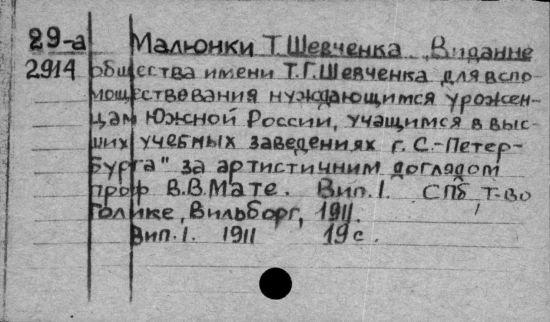 29-а Малюнки Т. Шевченка „Виданне
2914 общества имени Т.Г. Шевченка для вспо-
мощ ествования нуждающимся урожен-
цам Южной России, учащимся в выс-
ших учебных заведениях г. С.-Петер-
бурга" за артистичним доглядом
проф В.В. Мате. Вип. I. СПб Т-во
Голике, Вильборг, 1911.
Вип. I. 1911 19 с.